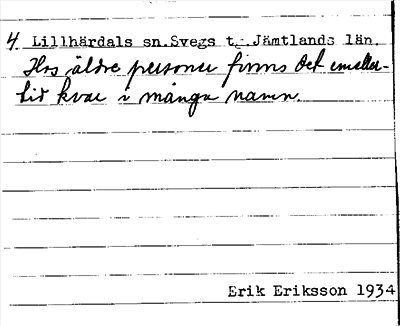 4. Lillhärdals sn. Svegs t., Jämtlands län.
Hos äldre personer finns det emeller-
tid kvar i många namn.
Erik Eriksson 1934